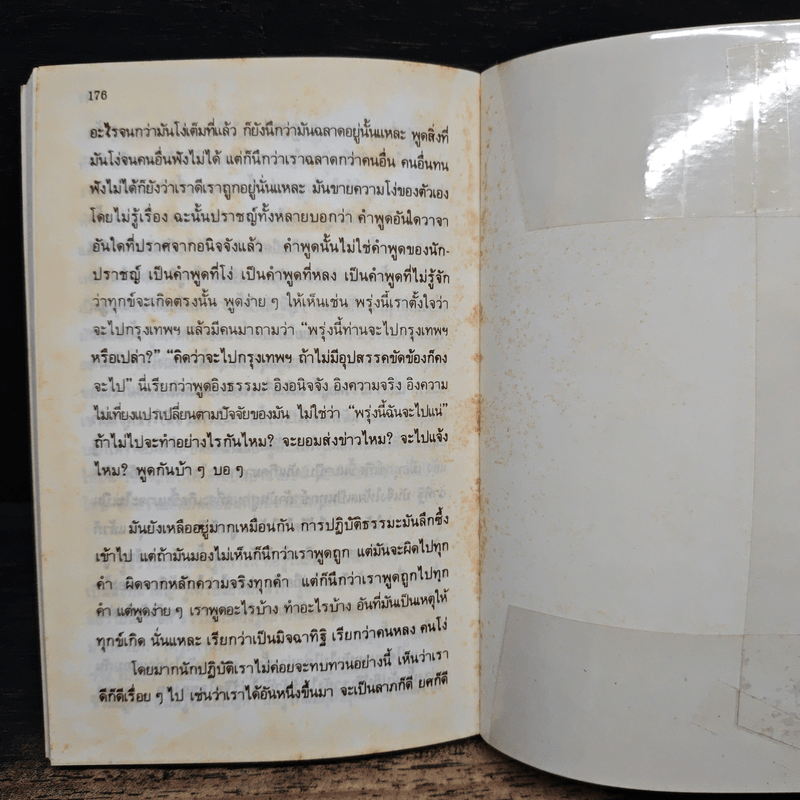 176
อะไรจนกว่ามันโง่เต็มที่แล้ว ก็ยังนึกว่ามันฉลาดอยู่นั้นแหละ พูดสิ่งที่
มันโง่จนคนอื่นฟังไม่ได้ แต่ก็นึกว่าเราฉลาดกว่าคนอื่น คนอื่นทน
ฟังไม่ได้ก็ยังว่าเราดีเราถูกอยู่นั่นแหละ มันขายความโง่ของตัวเอง
โดยไม่รู้เรื่อง ฉะนั้นปราชญ์ทั้งหลายบอกว่า คำพูดอันใดวาจา
อันใดที่ปราศจากอนิจจังแล้ว คำพูดนั้นไม่ใช่คำพูดของนัก-
ปราชญ์ เป็นคำพูดที่โง่ เป็นคำพูดที่หลง เป็นคำพูดที่ไม่รู้จัก
ว่าทุกข์จะเกิดตรงนั้น พูดง่าย ๆ ให้เห็นเช่น พรุ่งนี้เราตั้งใจว่า
จะไปกรุงเทพฯ แล้วมีคนมาถามว่า "พรุ่งนี้ท่านจะไปกรุงเทพฯ
หรือเปล่า?" "คิดว่าจะไปกรุงเทพฯ ถ้าไม่มีอุปสรรคขัดข้องก็คง
จะไป" นี่เรียกว่าพูดอิงธรรมะ อิงอนิจจัง อิงความจริง อิงความ
ไม่เที่ยงแปรเปลี่ยนตามปัจจัยของมัน ไม่ใช่ว่า "พรุ่งนี้ฉันจะไปแน่"
ถ้าไม่ไปจะทำอย่างไรกันไหม? จะยอมส่งข่าวไหม? จะไปแจ้ง
ไหม? พูดกันบ้า ๆ บอ ๆ
มันยังเหลืออยู่มากเหมือนกัน การปฏิบัติธรรมะมันลึกซึ้ง
เข้าไป แต่ถ้ามันมองไม่เห็นก็นึกว่าเราพูดถูก แต่มันจะผิดไปทุก
คำ ผิดจากหลักความจริงทุกคำ แต่ก็นึกว่าเราพูดถูกไปทุก
คำ แต่พูดง่าย ๆ เราพูดอะไรบ้าง ทำอะไรบ้าง อันที่มันเป็นเหตุให้
ทุกข์เกิด นั่นแหละ เรียกว่าเป็นมิจฉาทิฐิ เรียกว่าคนหลง คนโง่
โดยมากนักปฏิบัติเราไม่ค่อยจะทบทวนอย่างนี้ เห็นว่าเรา
ดีก็ดีเรื่อย ๆ ไป เช่นว่าเราได้อันหนึ่งขึ้นมา จะเป็นลาภก็ดี ยศก็ดี